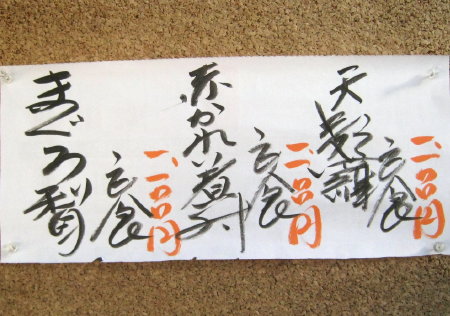 天麩羅
定食
一、一〇〇円
赤かれい煮付
定食
一、一〇〇円
まぐろ
定食
一、一〇〇円